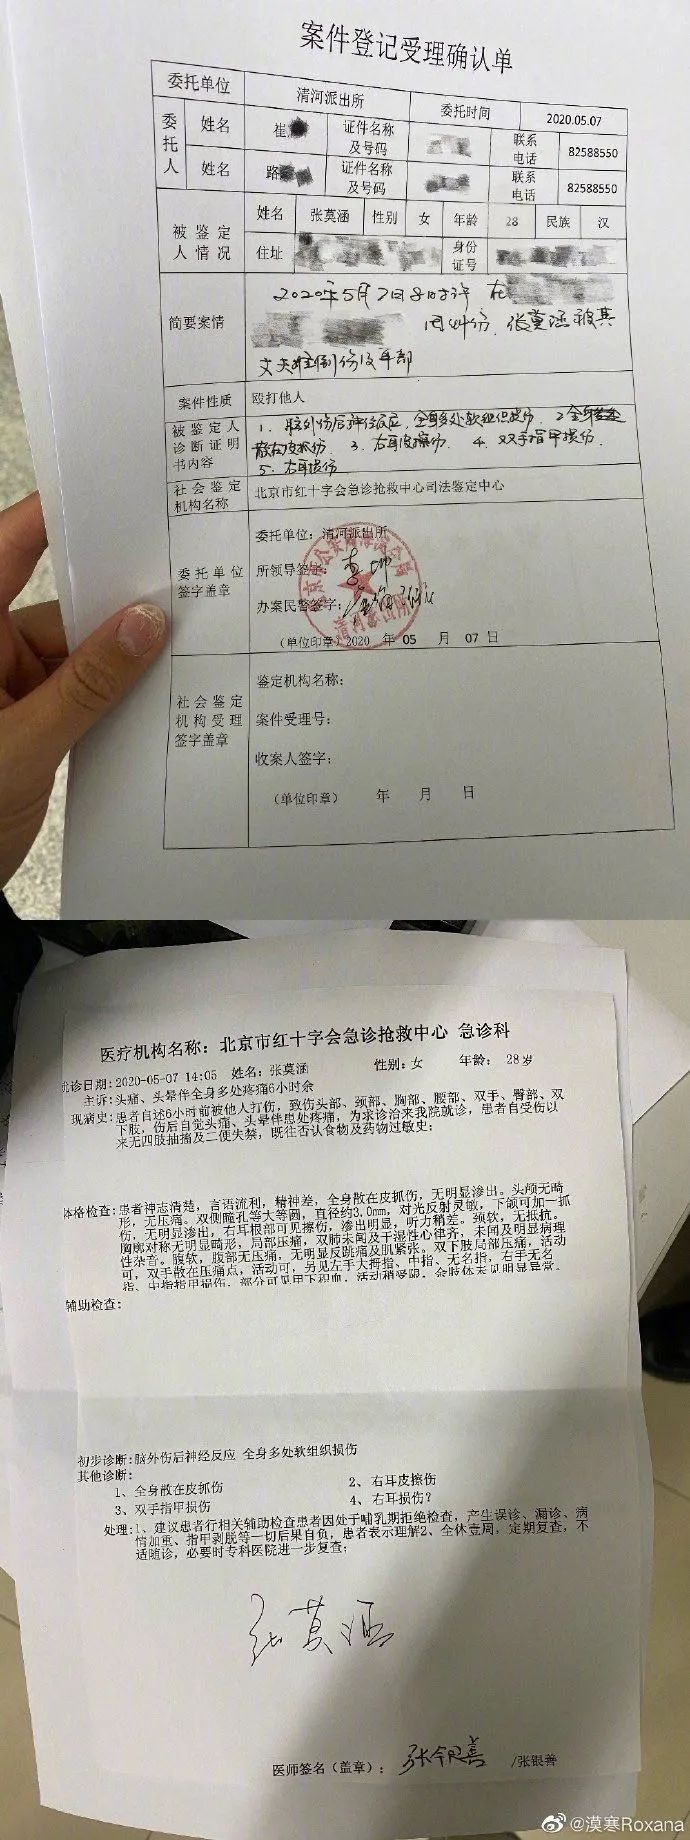 案件登记受理确认单
委托单位 清河派出所 委托时间 2020.05.07
委托人 姓名 崔 证件名称及号码 联系电话 82588550
姓名 路 证件名称及号码 联系电话 82588550
被鉴定人情况 姓名 张莫涵 性别 女 年龄 28 民族 汉
住址 身份证号
简要案情 2020年5月7日8时许 在
因纠纷, 张莫涵被其
丈夫 伤及耳部
案件性质 殴打他人
被鉴定人诊断证明书内容 1、脑外伤后神经反应, 全身多处软组织损伤 2全身
散在皮抓伤 3、右耳皮擦伤. 4、双手指甲损伤.
5、右耳损伤
社会鉴定机构名称 北京市红十字会急诊抢救中心司法鉴定中心
委托单位签字盖章 委托单位: 清河派出所
所领导签字:
办案民警签字:
(单位印章) 2020 年 05 月 07 日
社会鉴定机构受理签字盖章 鉴定机构名称:
案件受理号:
收案人签字:
(单位印章) 年 月 日
医疗机构名称: 北京市红十字会急诊抢救中心 急诊科
诊日期:2020-05-07 14:05 姓名:张莫涵 性别:女 年龄: 28岁
主诉: 头痛、头晕伴全身多处疼痛6小时余
现病史: 患者自述6小时前被他人打伤, 致伤头部、颈部、胸部、腰部、双手、臀部、双
下肢, 伤后自觉头痛、头晕伴患处疼痛, 为求诊治来我院就诊, 患者自受伤以
来无四肢抽搐及二便失禁, 既往否认食物及药物过敏史;
体格检查: 患者神志清楚, 言语流利, 精神差, 全身散在皮抓伤, 无明显渗出。头颅无畸
形, 无压痛。双侧瞳孔等大等圆, 直径约3.0mm, 对光反射灵敏, 下颌可加一抓
伤, 无明显渗出, 右耳根部可见擦伤, 渗出明显, 听力稍差。颈软, 无抵抗。
胸廓对称无明显畸形, 局部压痛, 双肺未闻及干湿性心律齐, 未闻及明显病理
性杂音。腹软, 腹部无压痛, 无明显反跳痛及肌紧张。双下肢局部压痛, 活动
可, 双手散在压痛点, 活动可, 另见左手大拇指、中指、无名指, 右手无名
指、中指指甲损伤, 部分可见甲下积血, 活动稍受限, 余肢体未见明显异常。
辅助检查:
初步诊断: 脑外伤后神经反应 全身多处软组织损伤
其他诊断:
1、全身散在皮抓伤 2、右耳皮擦伤
3、双手指甲损伤 4、右耳损伤?
处理: 1、建议患者行相关辅助检查患者因处于哺乳期拒绝检查, 产生误诊、漏诊、病
情加重、指甲剥脱等一切后果自负, 患者表示理解2、全休壹周, 定期复查, 不
适随诊, 必要时专科医院进一步复查;
张莫涵
医师签名(盖章): 张银善 /张银善
@漠寒Roxana